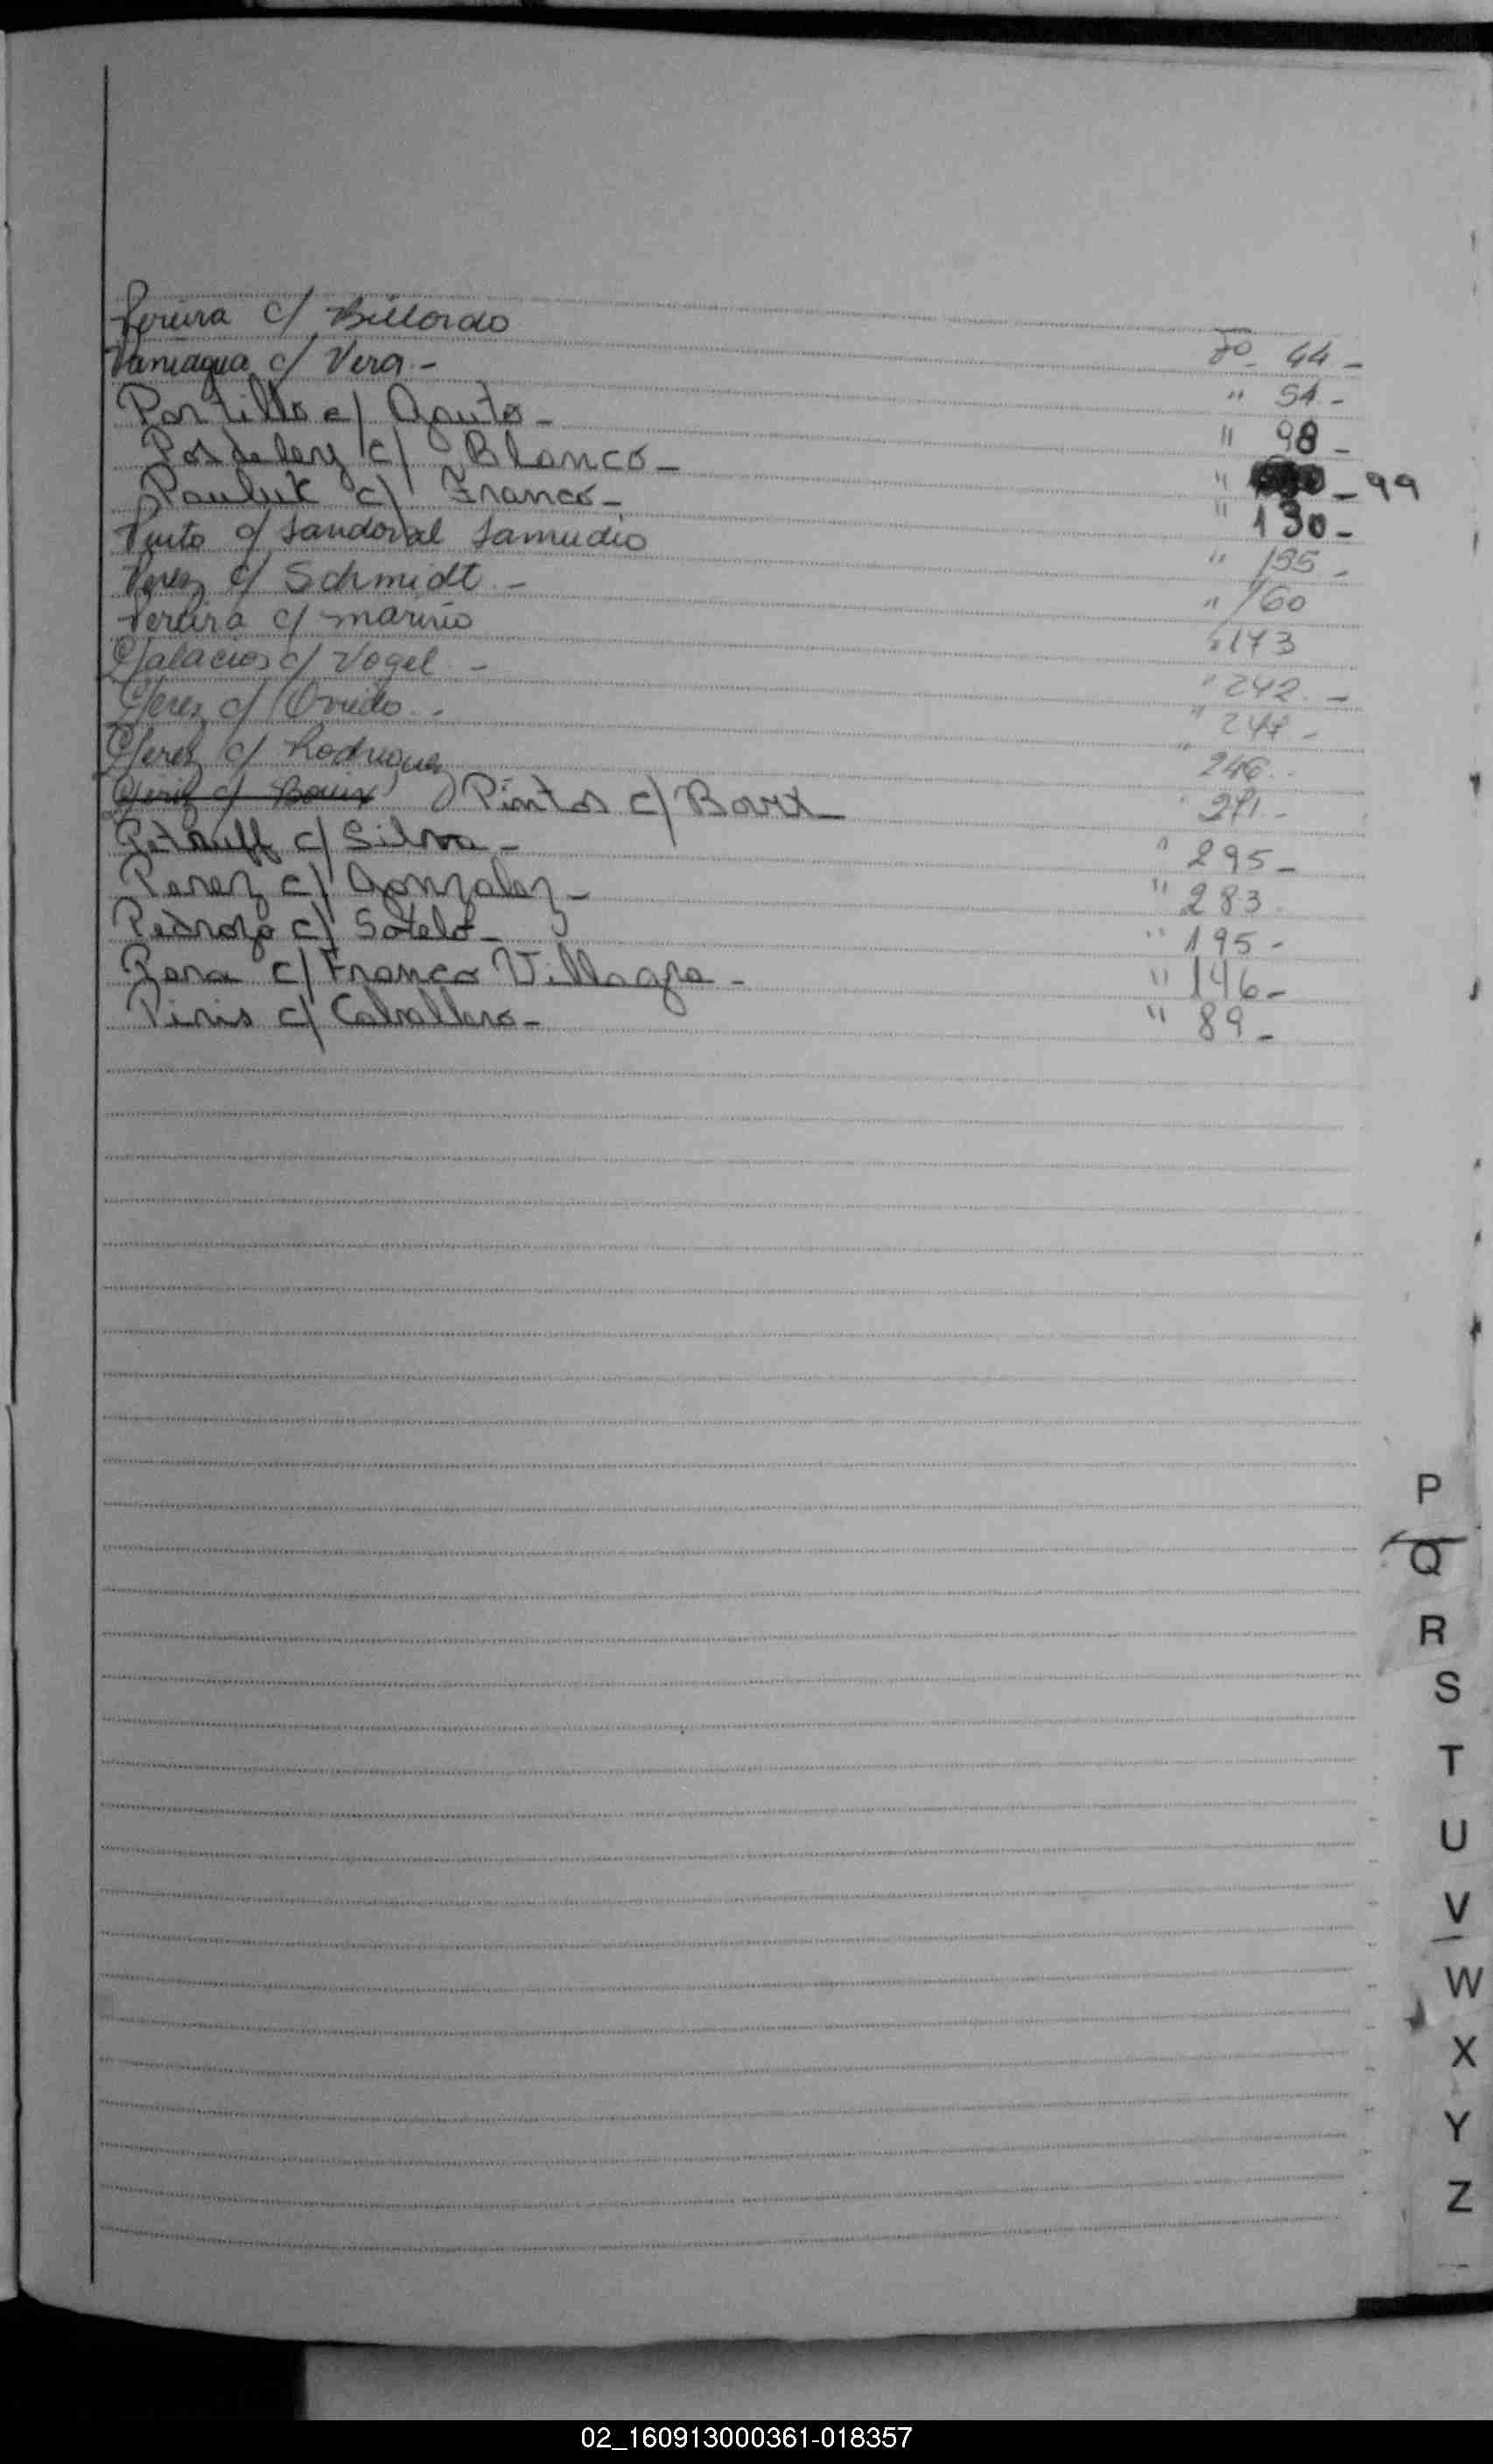 Pereira c/ Billordo Fo 44.-
Paniagua c/ Vera.- " 54.-
Portillo c/ Agusto- " 98-
Posdeley c/ Blanco- " -99
Pauluk c/ Franco- " 130-
Pinto c/ Sandoval Samudio " 155-
Perez c/ Schmidt.- " 160
Pereira c/ Marino " 173
Palacios c/ Vogel.- " 242.-
Perez c/ Oviedo.- " 244.-
Perez c/ Rodriguez " 246.-
Pintos c/ Bouix- " 271.-
Petruff c/ Silva- " 295-
Perez c/ Gonzalez- " 283.
Pedrozo c/ Sotelo- " 195-
Pera c/ Franco Villagra- " 146-
Piris c/ Caballero- " 89-
P
Q
R
S
T
U
V
W
X
Y
Z
02_160913000361-018357